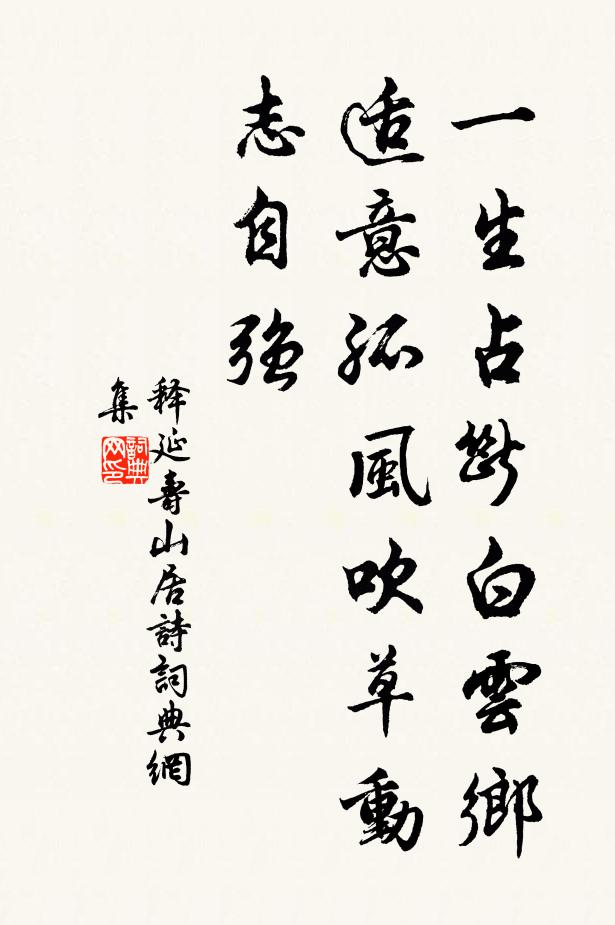 一生占斷白雲鄉
适意孤風吹草動
志自強
释延壽山居詩詞典網
集
詞典
网印